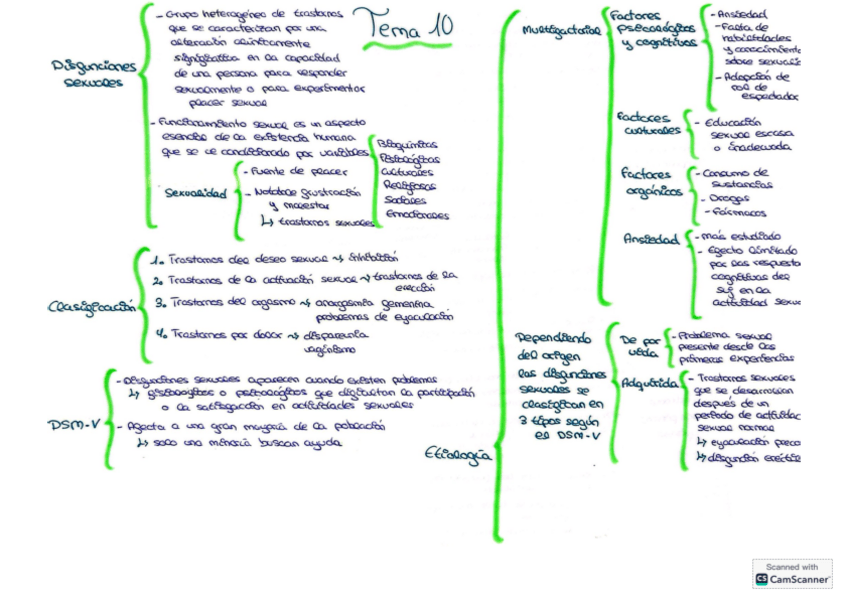 Tema 10
Disfunciones
sexuales
- Grupo heterogéneo de trastornos
que se caracterizan por una
alteración clínicamente
significativa en la capacidad
de una persona para responder
sexualmente o para experimentar
placer sexual
- Funcionamiento sexual es un aspecto
esencial de la existencia humana
que se ve condicionado por variables
Bioquímicas
Psicológicas
Culturales
Religiosas
Sociales
Emocionales
Sexualidad
- Fuente de placer
- Notable frustración
y malestar
↳ trastornos sexuales
Clasificación
1. Trastornos del deseo sexual ~> inhibición
2. Trastornos de la activación sexual ~> trastornos de la
erección
3. Trastornos del orgasmo ~> anorgasmia femenina
problemas de eyaculación
4. Trastornos por dolor ~> dispareunia
vaginismo
DSM-V
- Disfunciones sexuales aparecen cuando existen problemas
↳ fisiológicos o psicológicos que dificultan la participación
o la satisfacción en actividades sexuales
- Afecta a una gran mayoría de la población
↳ solo una minoría buscan ayuda
Etiología
Multifactorial
Factores
psicológicos
y cognitivos
- Ansiedad
- Falta de
habilidades
y conocimiento
sobre sexuali
- Adopción de
rol de
espectador
Factores
culturales
- Educación
sexual escasa
o inadecuada
Factores
orgánicos
- Consumo de
sustancias
- Drogas
- Fármacos
Ansiedad
- más estudiado
- Efecto limitado
por las respuesta
cognitivas del
suj en la
actividad sexua
Dependiendo
del origen
las disfunciones
sexuales se
clasifican en
3 tipos según
el DSM-V
De por
vida
- Problema sexual
presente desde las
primeras experiencias
Adquirida
- Trastornos sexuales
que se desarrollan
después de un
período de actividad
sexual normal
↳ eyaculación preco
↳ disfunción eréctil
Scanned with
CS CamScanner